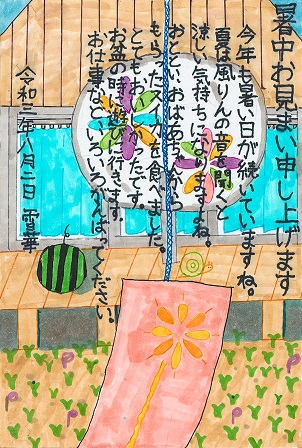 暑中お見まい申し上げます
今年も暑い日が続いていますね。
夏は風りんの音を聞くと
涼しい気持ちになりますよね。
おととい、おばあちゃんから
もらったすいかを食べました。
とてもおいしかったです。
お盆の時に遊びに行きます。
お仕事などいろいろがんばってください。
令和三年八月二日 雪華